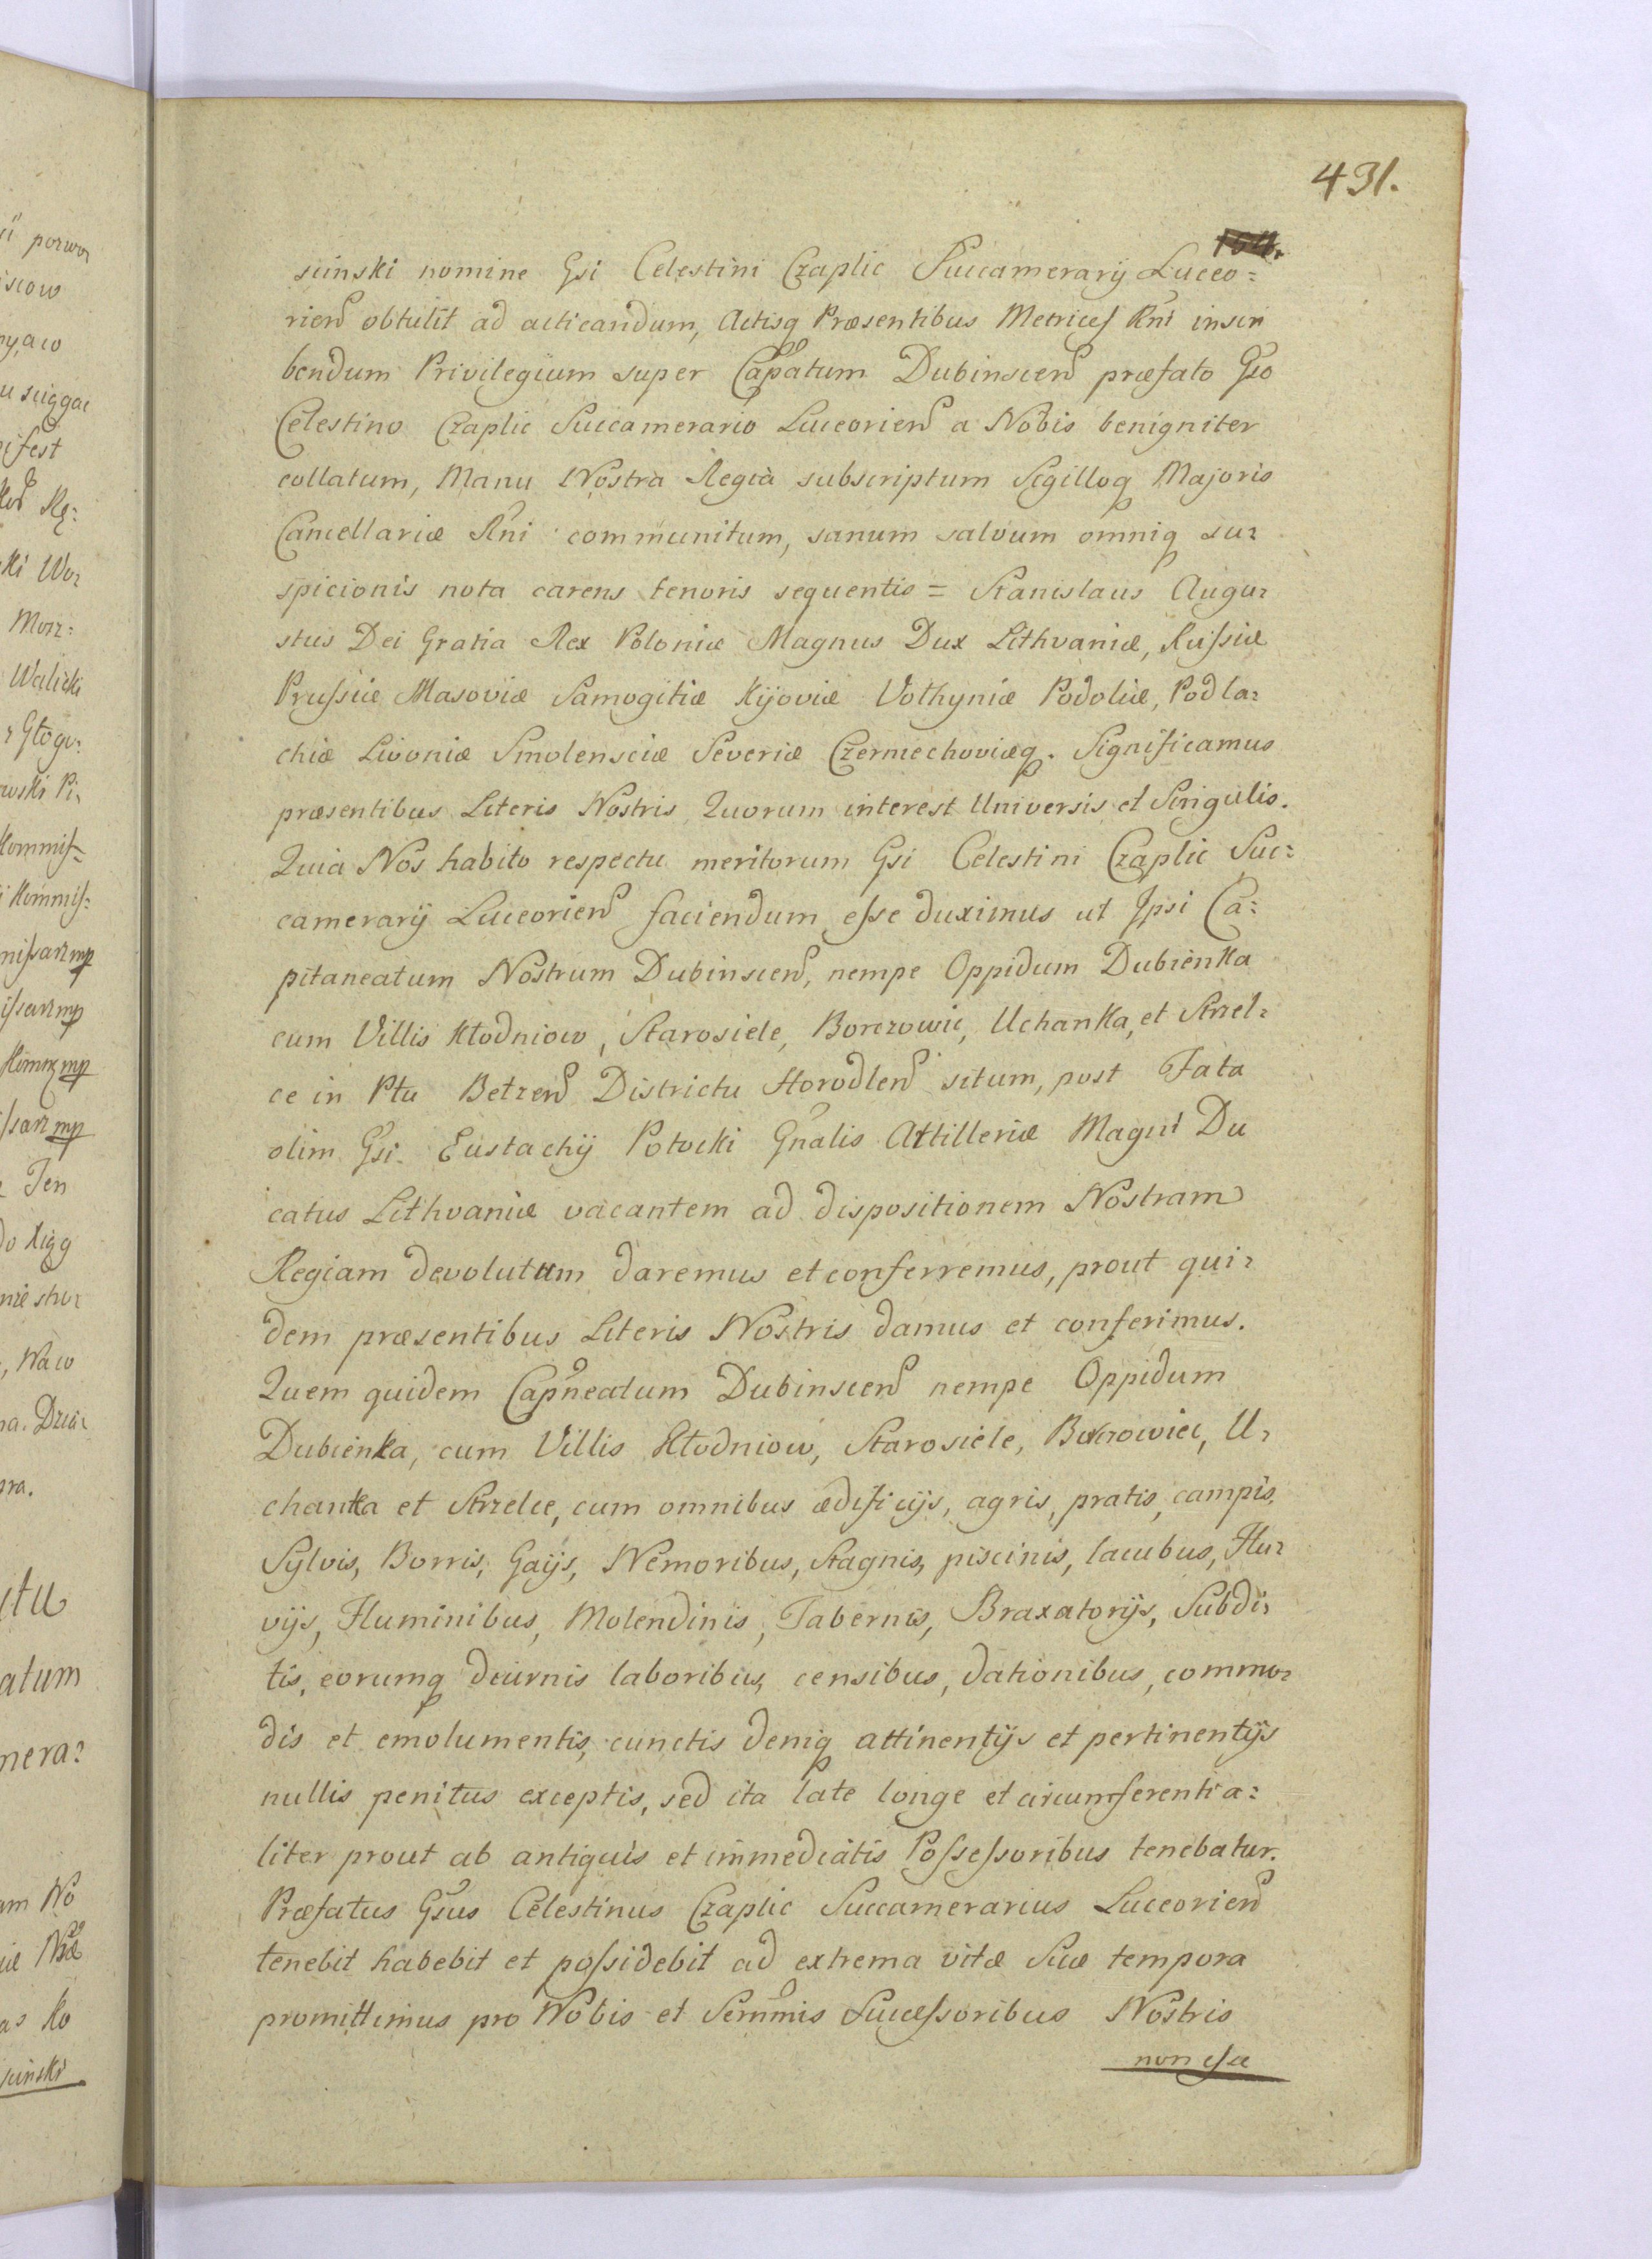 431.
scinski nomine Gsi Celestini Czaplic Succamerarij Luceo=
rien obtulit ad acticandum, Actisq Præsentibus Metrices Rni inscri
bendum Privilegium super Capatum Dubinscien præfato Gso
Celestino Czaplic Succamerario Luceorien a Nobis benigniter
collatum, Manu Nostra Regia subscriptum Sigilloq Majoris
Cancellariæ Rni communitum, sanum salvum omniq su=
spicionis nota carens tenoris sequentis = Stanislaus Augu=
stus Dei Gratia Rex Poloniæ Magnus Dux Lithvaniæ, Russiæ
Prussiæ Masoviæ Samogitiæ Kijoviæ Volhyniæ Podoliæ, Podla=
chiæ Livoniæ Smolensciæ Severiæ Czerniechoviæq. Significamus
præsentibus Literis Nostris Quorum interest Universis et Singulis.
Quia Nos habito respectu meritorum Gsi Celestini Czaplic Suc=
camerarij Luceorien faciendum esse duximus ut Ipsi Ca=
pitaneatum Nostrum Dubinscien, nempe Oppidum Dubienka
cum Villis Kłodniow, Starosiele, Borczowic, Uchanka, et Strzel=
ce in Ptu Betzen Districtu Horodlen situm, post Fata
olim Gsi Eustachij Potocki Gnalis Attilleriæ Magni Du
catus Lithvaniæ vacantem ad dispositionem Nostram
Regiam devolutum daremus et conferremus, prout qui=
dem præsentibus Literis Nostris damus et conferimus.
Quem quidem Capneatum Dubinscien nempe Oppidum
Dubienka, cum Villis Kłodniow, Starosiele, U=
chanka et Strzelce, cum omnibus ædificijs, agris, pratis, campis,
Sylvis, Borris, Gaijs, Nemoribus, Stagnis, piscinis, lacubus, Flu=
vijs, Fluminibus, Molendinis, Tabernis, Braxatorijs, Subdi=
tis, eorumq diurnis laboribus, censibus, dationibus, commo=
dis et emolumentis, cunctis deniq attinentijs et pertinentijs
nullis penitus exceptis, sed ita late longe et circumferentia=
liter prout ab antiquis et immediatis Possessoribus tenebatur.
Præfatus Gsus Celestinus Czaplic Succamerarius Luceorien
tenebit habebit et possidebit ad extrema vitæ Suæ tempora
promittimus pro Nobis et Sermmis Successoribus Nostris
non esse